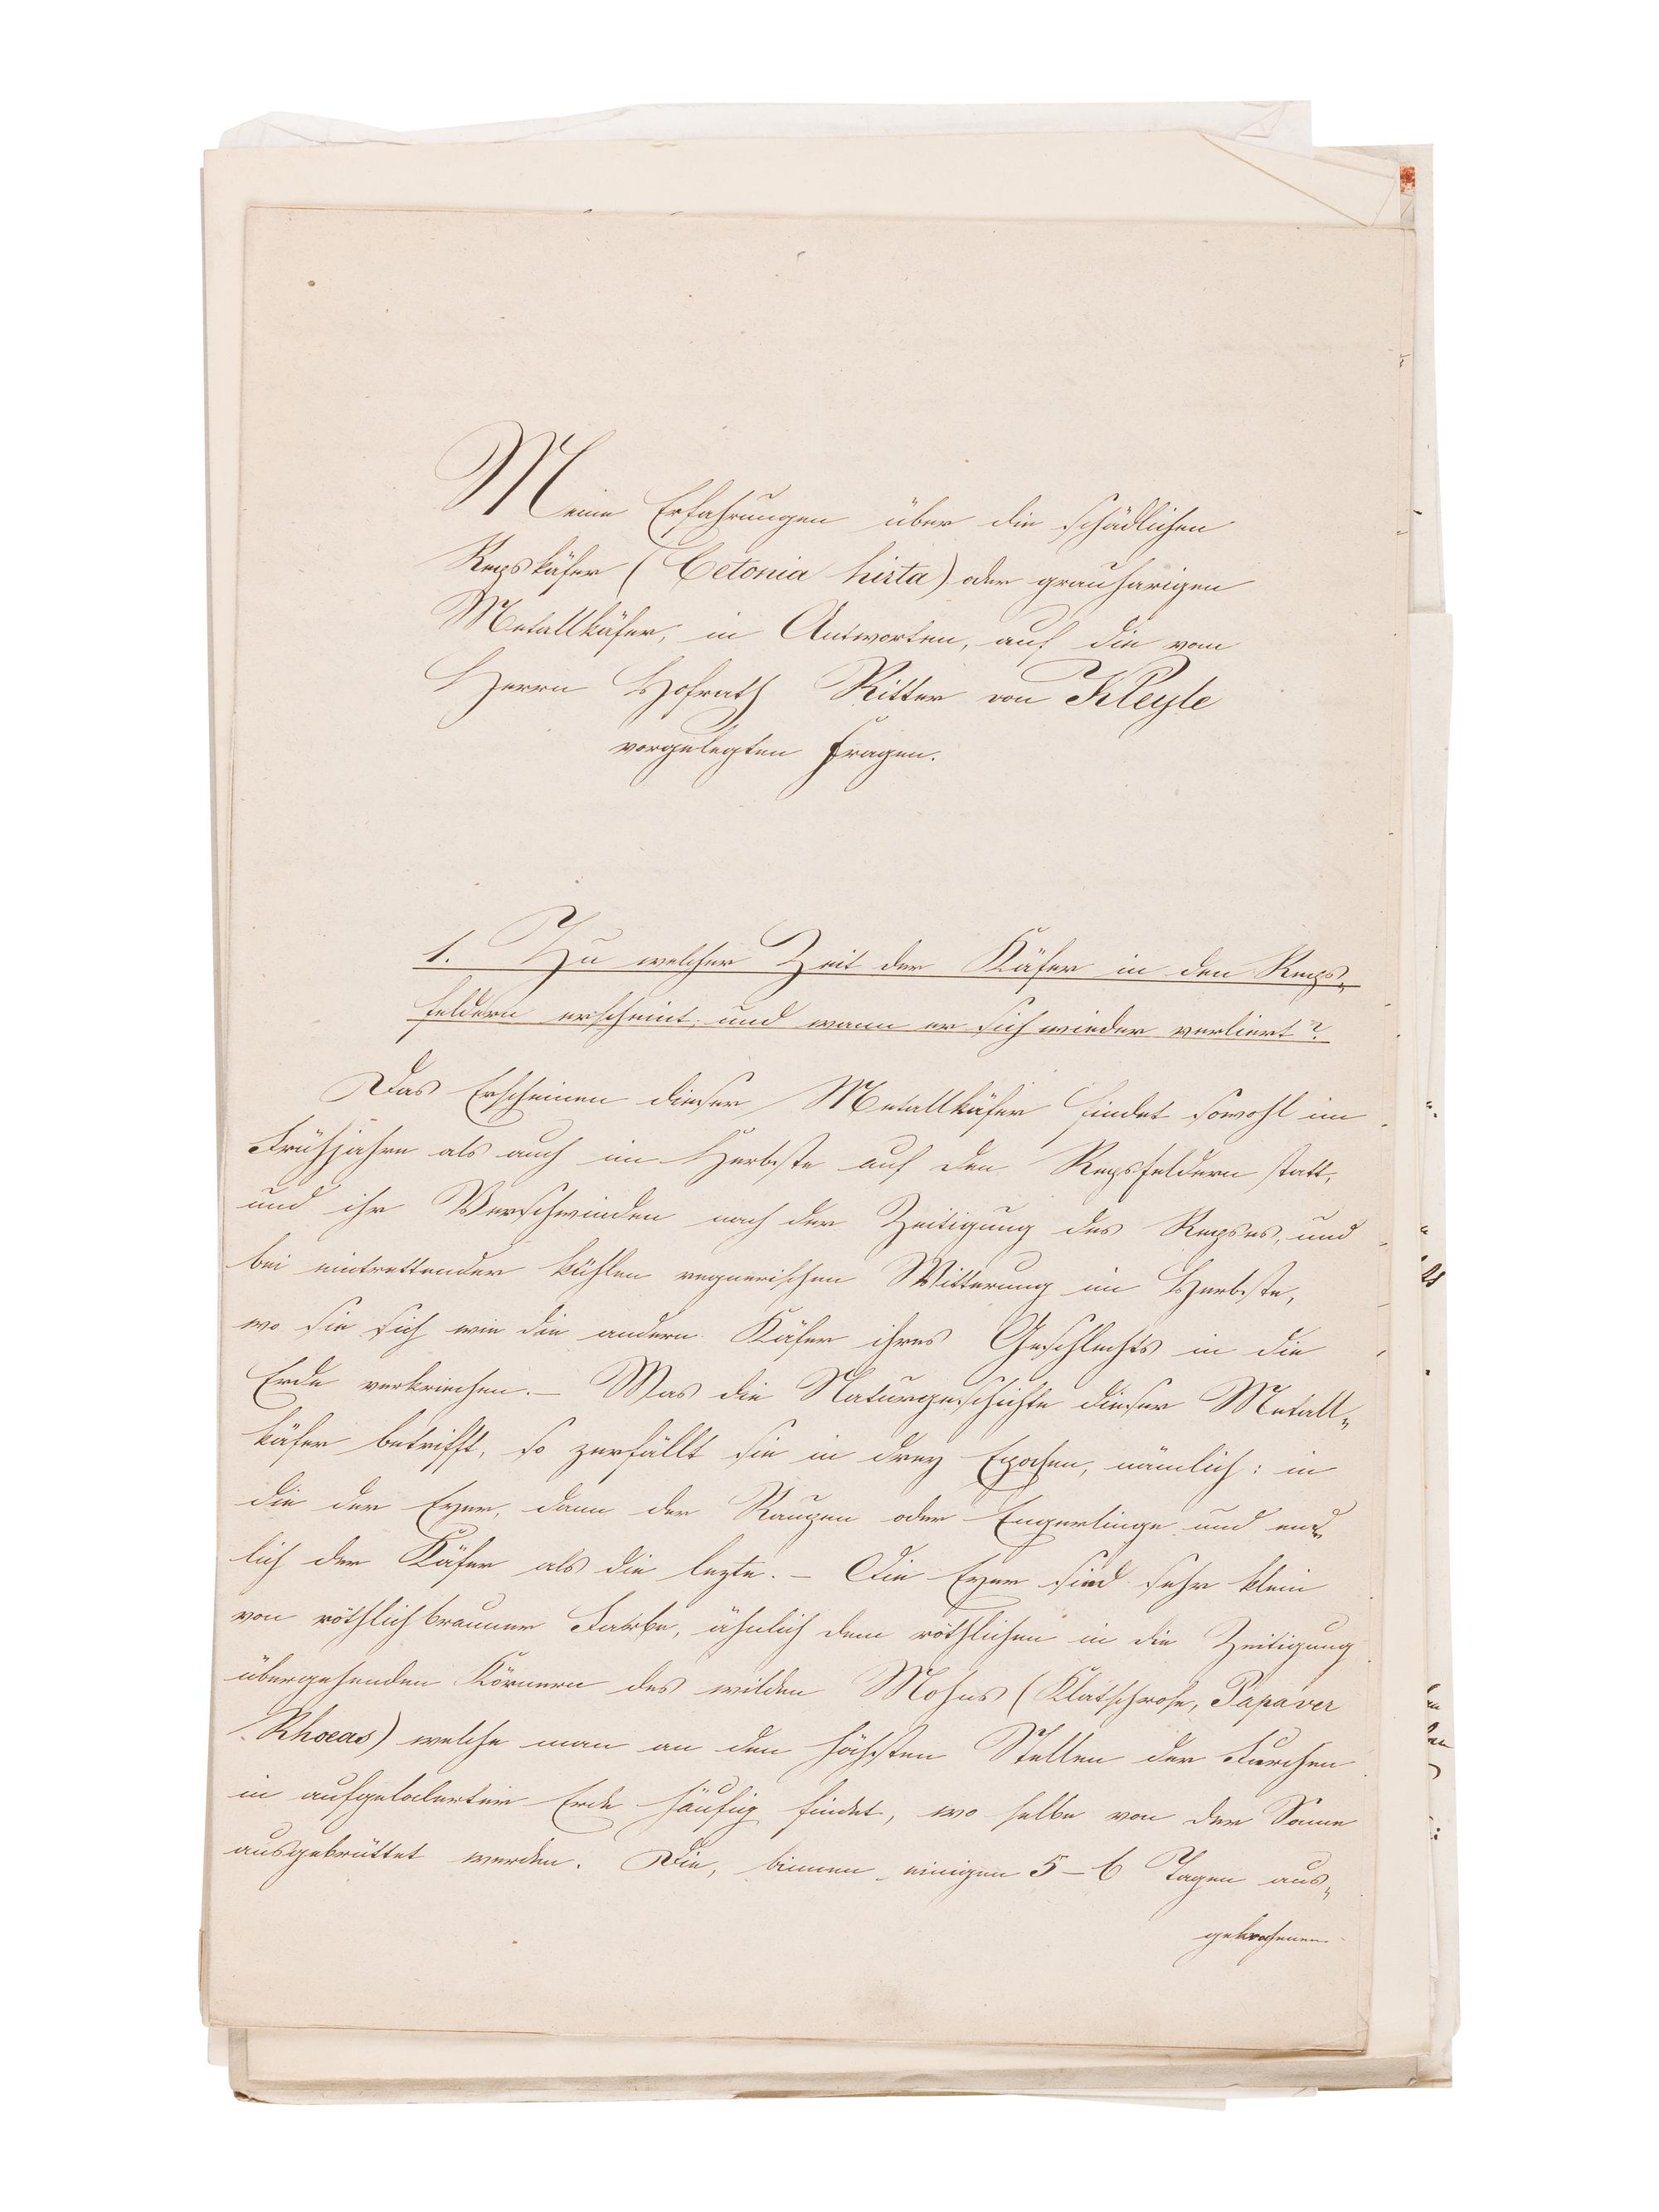 Meine Erfahrungen über die schädlichen
Repskäfer (Cetonia hirta) oder grauharigen
Metallkäfer, in Antworten, auf die vom
Herrn Hofrath Ritter von Kleyle
vorgelegten Fragen.
1. Zu welcher Zeit der Käfer in den Reps„
feldern erscheint, und wann er sich wieder verliert?
Das Erscheinen dieser Metallkäfer findet sowohl im
Frühjahre als auch im Herbste auf den Repsfeldern statt,
und ihr Verschwinden nach der Zeitigung des Repses, und
bei eintrettender kühlen regnerischen Witterung im Herbste,
wo sie sich wie die andern Käfer ihres Geschlechts in die
Erde verkriechen. – Was die Naturgeschichte dieser Metall„
käfer betrifft, so zerfällt sie in drey Epochen, nämlich: in
die der Eyer, dann der Raupen oder Engerlinge und end„
lich der Käfer als die lezte. – Die Eyer sind sehr klein
von röthlichbrauner Farbe, ähnlich dem röthlichen in die Zeitigung
übergehenden Körnern des wilden Mohns (Klatschrose, Papaver
Rhoeas) welche man an den höchsten Stellen der Furchen
in aufgelockerter Erde häufig findet, wo selbe von der Sonne
ausgebrüttet werden. Die, binnen einigen 5–6 Tagen aus„
gekrochenen